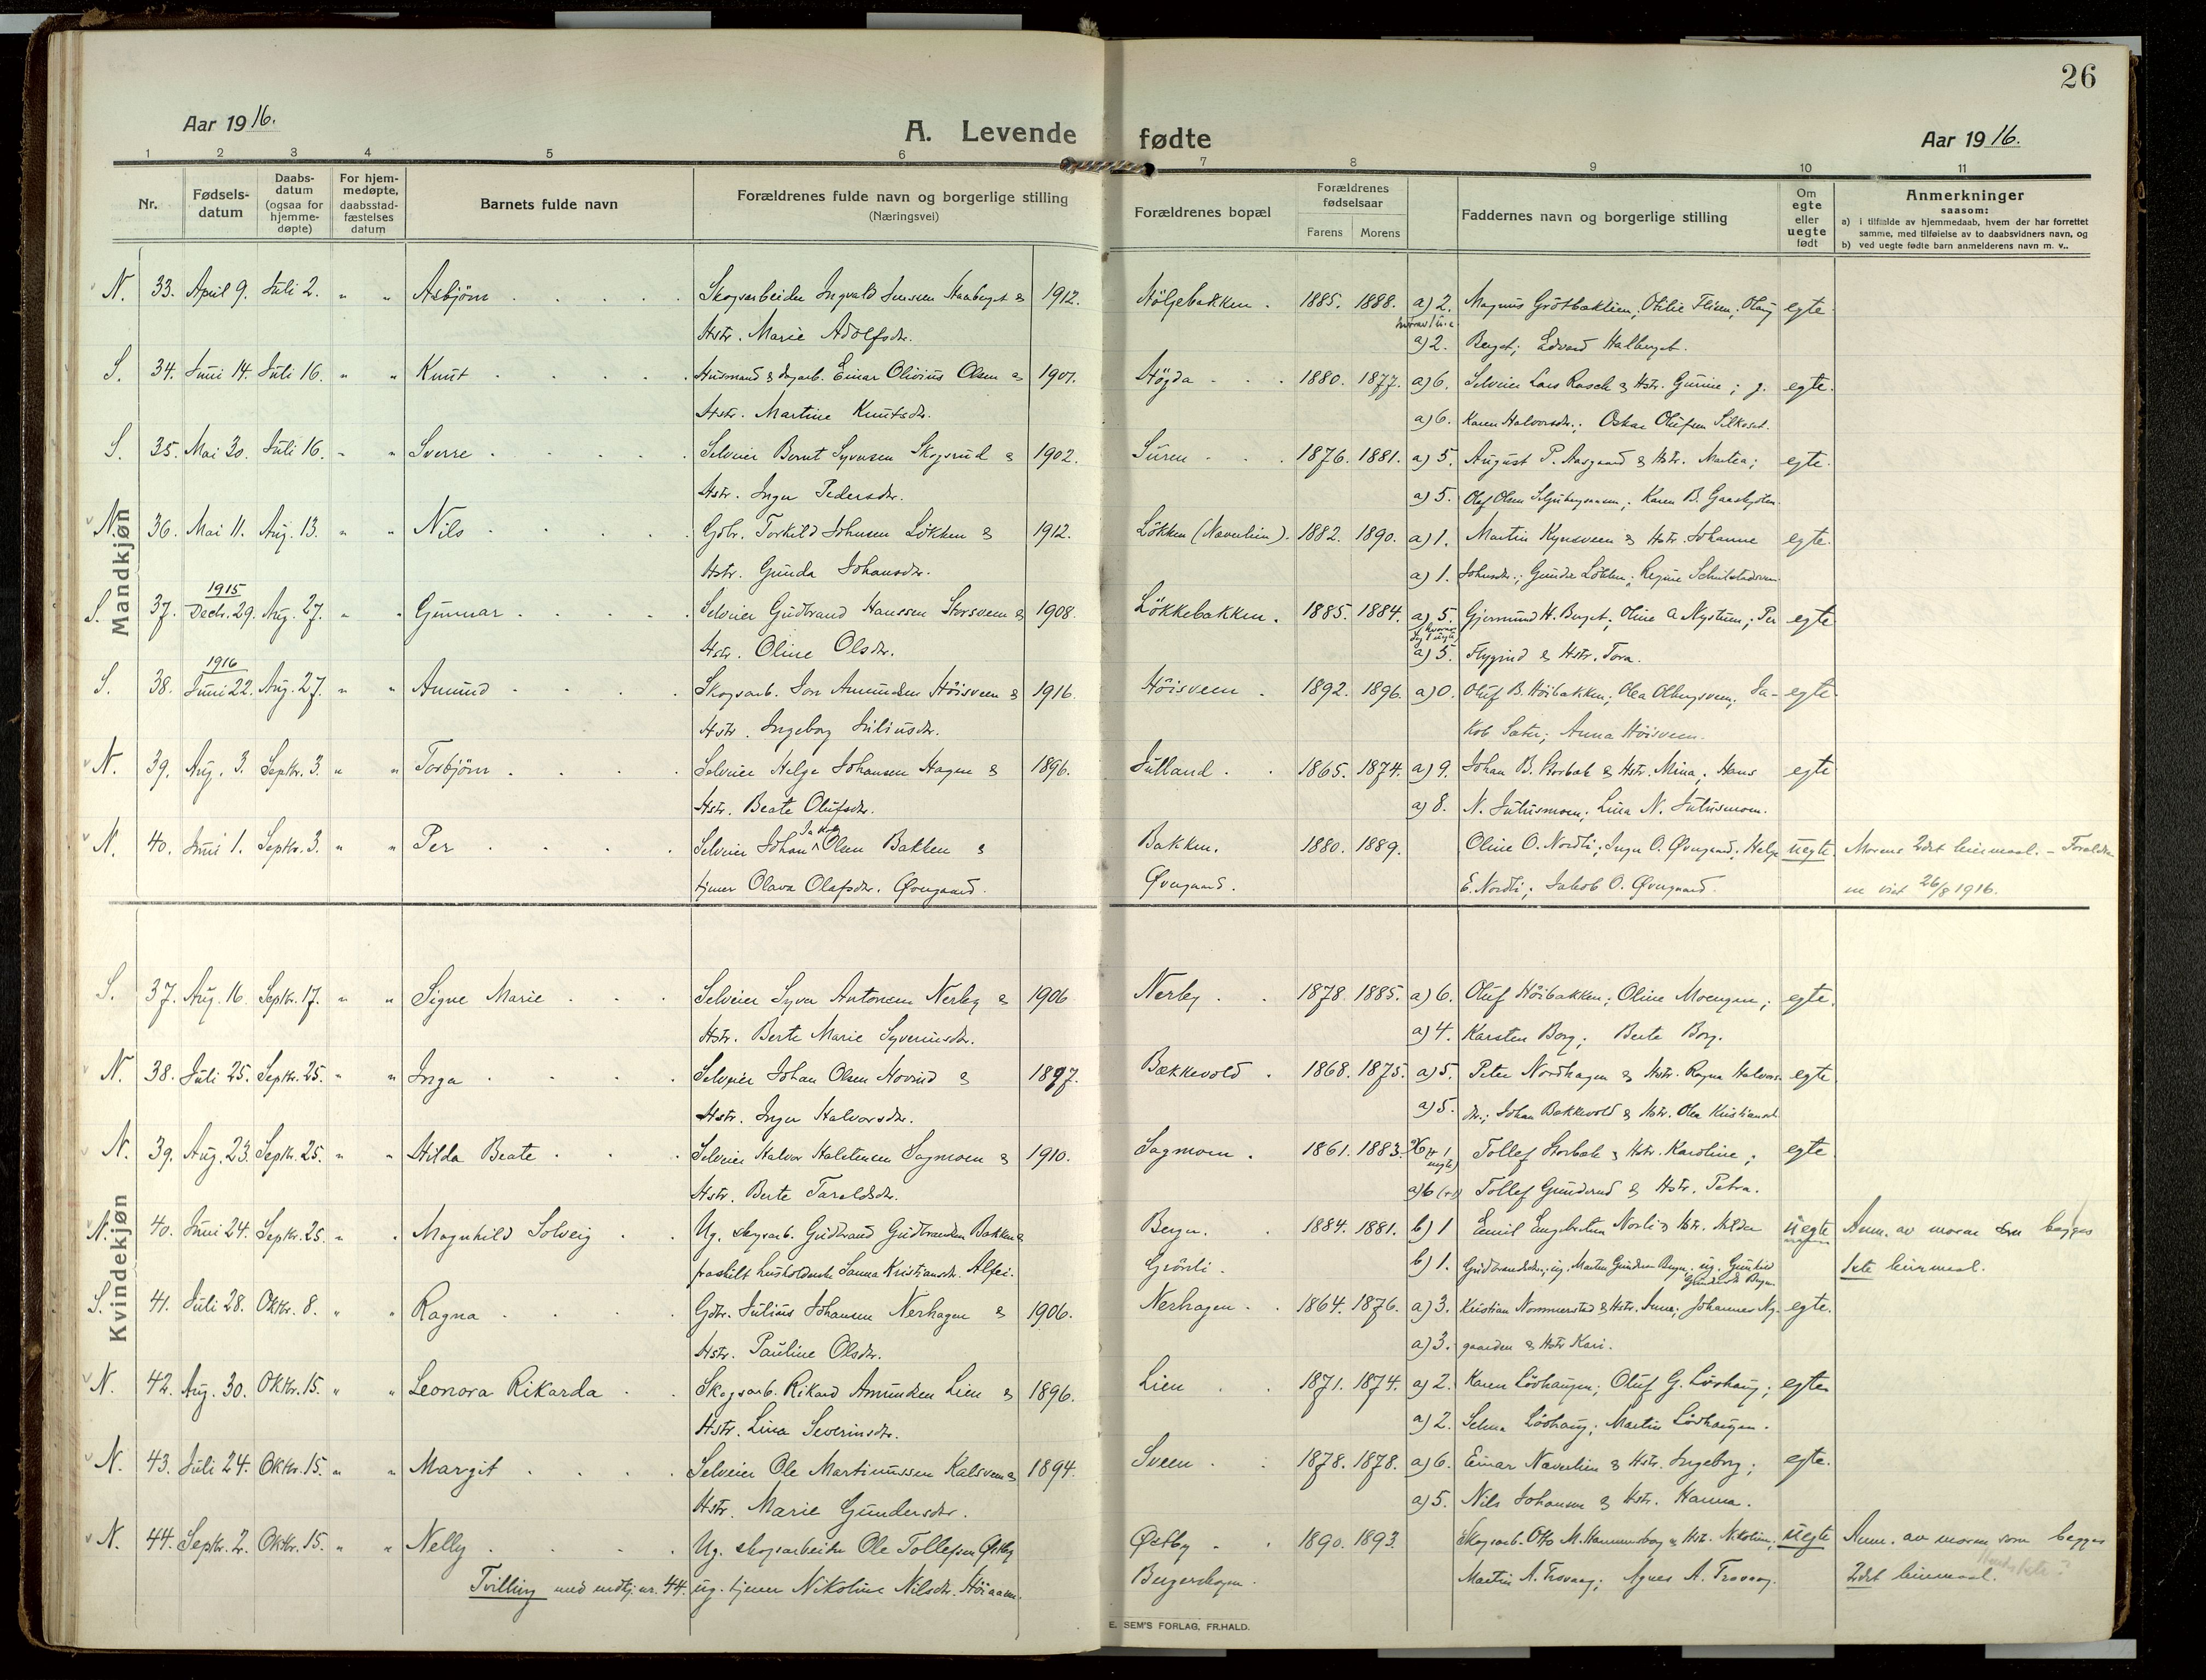 26
Aar 1916.
A. Levende fødte
Aar 1916.
1 2 3 4 5 6 7 8 9 10 11
Nr.
Fødsels-
datum
Daabs-
datum
(ogsaa for
hjemme-
døpte)
For hjem-
medøpte,
daabsstad-
fæstelses
datum
Barnets fulde navn
Forældrenes fulde navn og borgerlige stilling
(Næringsvei)
Forældrenes bopæl
Forældrenes
fødselsaar
Farens Morens
Faddernes navn og borgerlige stilling
Om
egte
eller
uegte
født
Anmerkninger
saasom:
a) i tilfælde av hjemmedaab, hvem der har forrettet
samme, med tilføielse av to daabsvidners navn, og
b) ved uegte fødte barn anmelderens navn m. v..
Mandkjøn
N. 33. April 9. Juli 2. " " Asbjörn Skogsarbeider Ingvald Jenssen & 1912. Hölgebakken. 1885. 1888. a) 2. Magnus Grötbækken; Otilie Flisen; egte.
Hstr. Marie Adolfsdr. a) 2. Berget; Edvard Halberget.
S. 34. Juni 14. Juli 16. " " Knut Husmand & dagarb. Einar Olivius Olsen & 1901. Högda 1880. 1877. a) 6. Selveier Lars Rasch & Hstr. Gurine; egte.
Hstr. Martine Knutsdr. a) 6. Karen Halvorsdr.; Oskar Olufsen Silkoset.
S. 35. Mai 30. Juli 16. " " Sverre Selveier Bernt Syversen Skogsrud & 1902. Suren 1876. 1881. a) 5. August P. Aasgaard & Hstr. Martea; egte.
Hstr. Inger Pedersdr. a) 5. Olaf Olsen; Karen B.
N. 36. Mai 11. Aug. 13. " " Nils Gdbr. Torkild Johnsen Lökken & 1912. Lökken (Naverlien). 1882. 1890. a) 1. Martin Kynsveen & Hstr. Johanne egte.
Hstr. Gunda Johansdr. a) 1. Johnsdr.; Gunder Lökken; Regine
S. 37. 1915 Decbr. 29. Aug. 27. " " Gunnar Selveier Gudbrand Hanssen Storsveen & 1908. Lökkebakken. 1885. 1884. a) 5. Gjermund H. Berget; Oline A. Nystuen; Per egte
Hstr. Oline Olsdr. a) 5. Flygind & Hstr. Tora.
S. 38. 1916 Juni 22. Aug. 27. " " Amund Skogsarb. Jon Amundsen Höisveen & 1916. Höisveen 1892. 1896. a) 0. Oluf B. Höibakken; Olea Olbergsveen; Ja- egte.
Hstr. Ingeborg Juliusdr. kob Sæter; Anna Höisveen.
N. 39. Aug. 3. Septbr. 3. " " Torbjörn Selveier Helge Johansen Hagen & 1896. Julland 1865. 1874. a) 9. Johan B. Storbæk & Hstr. Mina; Hans egte
Hstr. Beate Olufsdr. a) 8. N. Julusmoen; Lina N. Julusmoen.
N. 40. Juni 1. Septbr. 3. " " Per Selveier Johan Olsen Bakken & Bakken. 1880. 1889. Oline O. Nordli; Inger O. Øvergaard; Helge uegte. Morens 2det leiermaal. - Foreldre-
tjener Olava Olafsdr. Øvergaard. Øvergaard. E. Nordli; Jakob O. Øvergaard. ne viet 26/8 1916.
Kvindekjøn
S. 37. Aug. 16. Septbr. 17. " " Signe Marie Selveier Syver Antonsen Nerby & 1906 Nerby 1878. 1885. a) 6. Oluf Höibakken; Oline Moengen; egte.
Hstr. Berte Marie Syverinsdr. a) 4. Karsten Borg; Berte Borg.
N. 38. Juli 25. Septbr. 25. " " Inga Selveier Johan Olsen Hovrud & 1897. Bækkevold 1868. 1875. a) 5. Peter Nordhagen & Hstr. Ragna Halvors- egte
Hstr. Inger Halvorsdr. a) 5. dr.; Johan Bækkevold & Hstr. Olea Kristiansdr.
N. 39. Aug. 23. Septbr. 25. " " Hilda Beate Selveier Halvor Halstensen Sagmoen & 1910. Sagmoen 1861. 1883. Tollef Storbæk & Hstr. Karoline; egte
Hstr. Berte Taraldsdr. a) 6 Tollef Gundersrud & Hstr. Petra.
N. 40. Juni 24. Septbr. 25. " " Magnhild Solveig Ug. skogsarb. Gudbrand Gudbrandsen Bakken & Berger. 1884. 1881. b) 1 Emil Engebretsen Norli & Hstr. Hilda uegte Anm. av moren begges
fraskilt husholderske Sanna Kristiansdr. Alfei. Grönli. b) 1. Gudbrandsdr.; ug. Marten Gundersen Bergen; ug. Gunhild Gundersdr. Bergen. 1ste leiermaal.
S. 41. Juli 28. Oktbr. 8. " " Ragna Gdbr. Julius Johansen Nerhagen & 1906. Nerhagen 1864. 1876. a) 3. Kristian Nommerstad & Hstr. Anna; Johannes Ny- egte.
Hstr. Pauline Olsdr. a) 3. gaarden & Hstr Kari.
N. 42. Aug. 30. Oktbr. 15. " " Leonora Rikarda Skogsarb. Rikard Amundsen Lien & 1896. Lien 1871. 1874. a) 2. Karen Lövhaugen; Oluf G. Lövhaug; egte
Hstr. Lina Severinsdr. a) 2. Selma Lövhaug; Martin Lövhaugen.
N. 43. Juli 24. Oktbr. 15. " " Margit Selveier Ole Martinussen Kalsveen & 1894. Sveen 1878. 1878. a) 6. Einar Naverlien & Hstr. Ingeborg; egte.
Hstr. Marie Gundersdr. a) 5. Nils Johansen & Hstr. Hanna.
N. 44. Septbr. 2. Oktbr. 15. " " Nelly Ug. skogsarbeider Ole Tollefsen Østby Østby 1890. 1893. Skogsarb. Otto M. & Hstr. Nikoline; uegte Anm. av moren som begges
Tvilling med mdkj. nr. 44. ug. tjener Nikoline Nilsdr. Höiaasen. Bergershagen. Martin A. Trovaag; Agnes A. Trovaag. 2det leiermaal.
E. SEM'S FORLAG, FR.HALD.